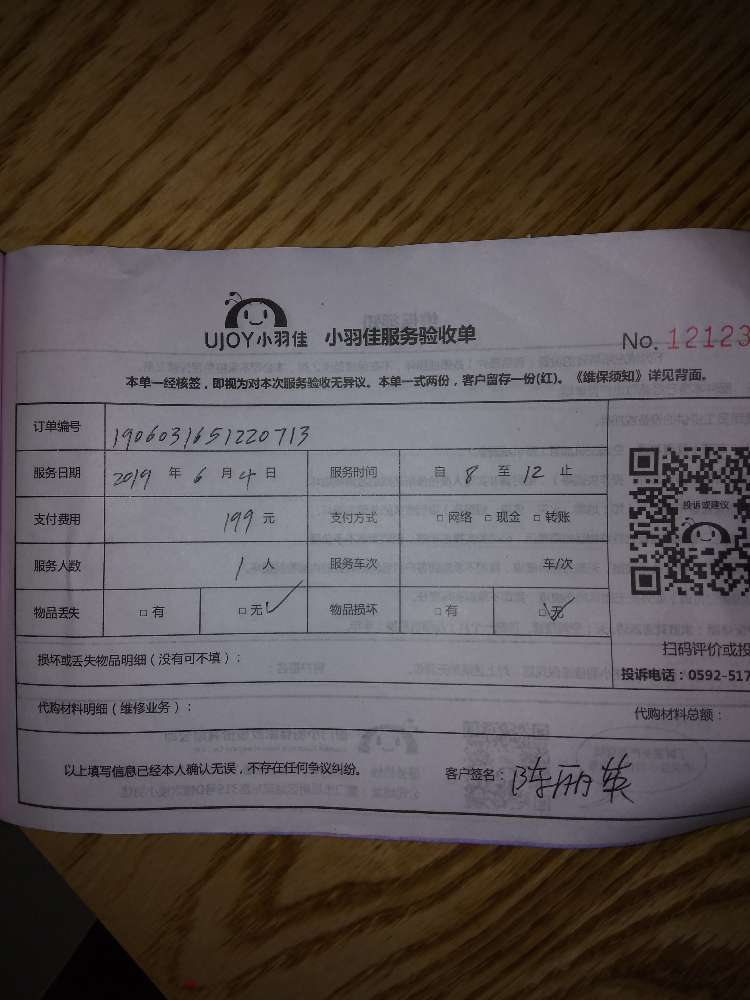 UJOY小羽佳 小羽佳服务验收单
No. 12123
本单一经核签，即视为对本次服务验收无异议。本单一式两份，客户留存一份(红)。《维保须知》详见背面。
订单编号 1906031651220713
服务日期 2019 年 6 月 4 日 服务时间 自 8 至 12 止
支付费用 199 元 支付方式 □ 网络 □ 现金 □ 转账
投诉或建议
服务人数 1 人 服务车次 车/次
物品丢失 □ 有 □ 无 ✓ 物品损坏 □ 有 □ 无 ✓
扫码评价或投
损坏或丢失物品明细（没有可不填）：
投诉电话：0592-517
代购材料明细（维修业务）：
代购材料总额：
以上填写信息已经本人确认无误，不存在任何争议纠纷。 客户签名：陈丽英